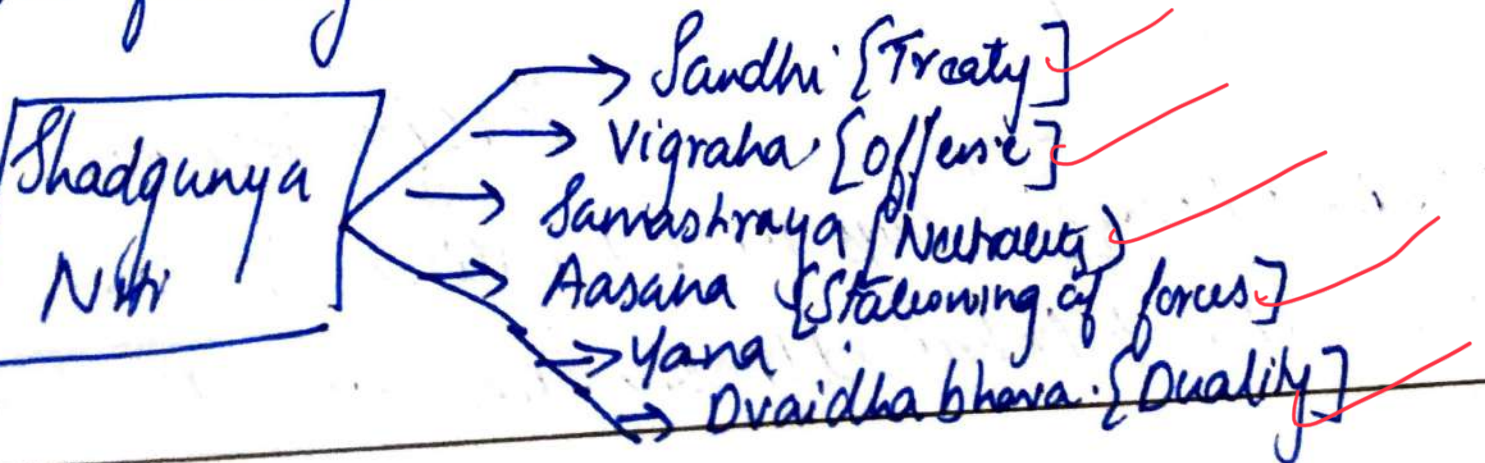 Shadgunya
Niti
Sandhi [Treaty]
Vigraha. [Offense]
Samashraya [Neutrality)
Aasana [Stationing of forces]
Yana
Dvaidhabhava. [Duality]